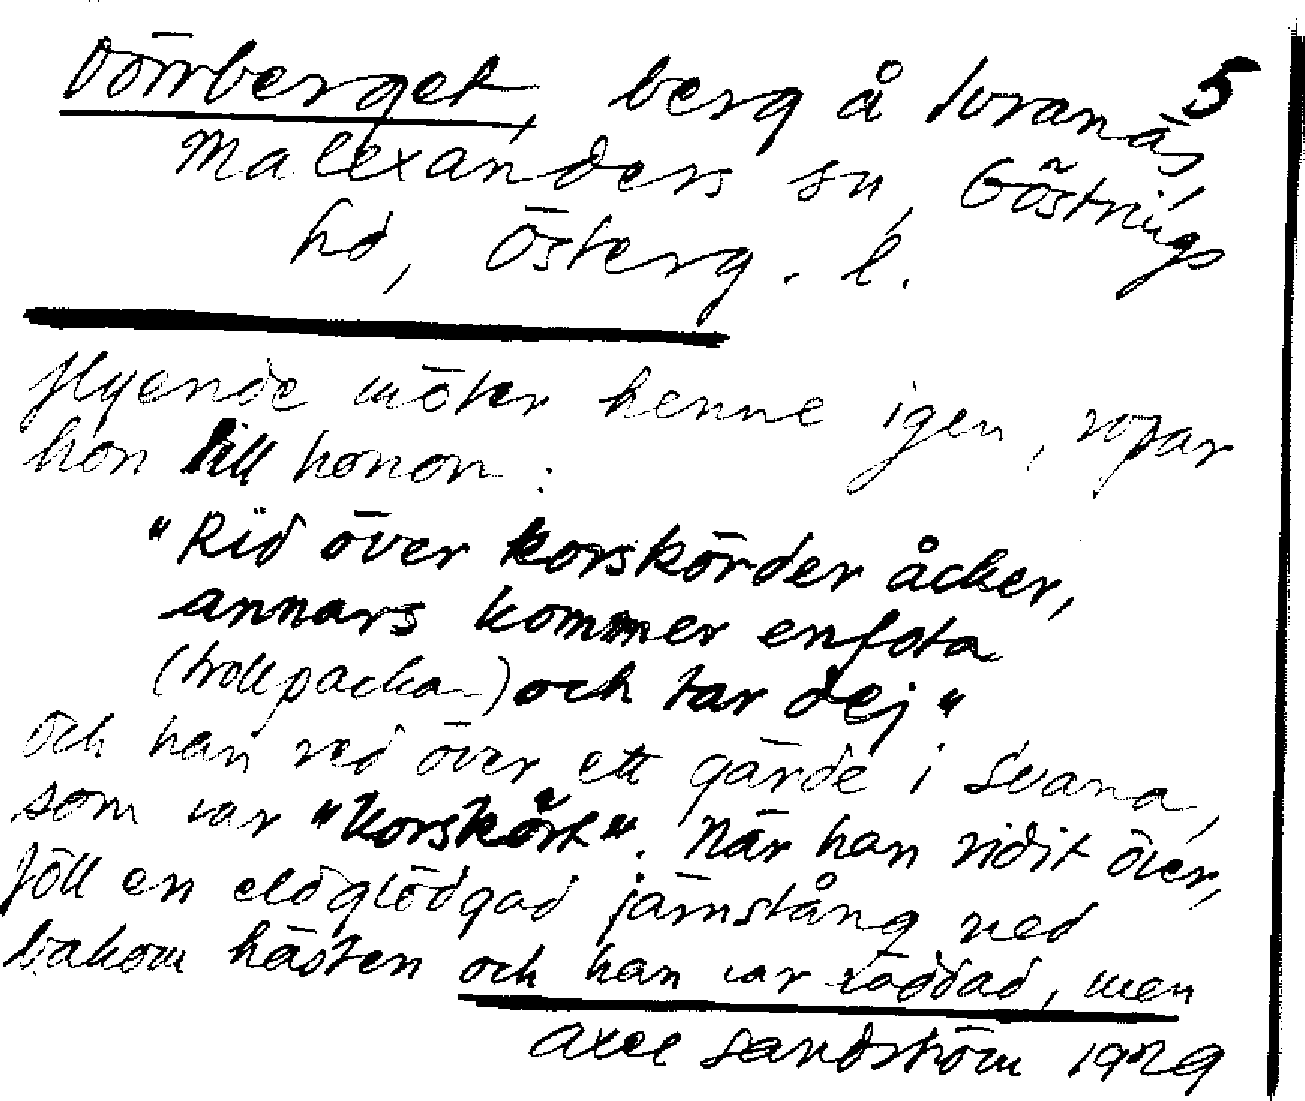 Dömberget, berg å Svanäs, 5
Malexanders sn, Göstrings
hd, Österg. l.
flyende möter henne igen, ropar
hon till honon:
"Rid över korskörder åcker,
annars kommer enfota
(trollpackan) och tar dej"
och han red över ett gärde i Svana,
som var "korskört". När han ridit över,
föll en eldglödgad järnstång ned
bakom hästen och han var räddad, men
Axel Sandström 1929